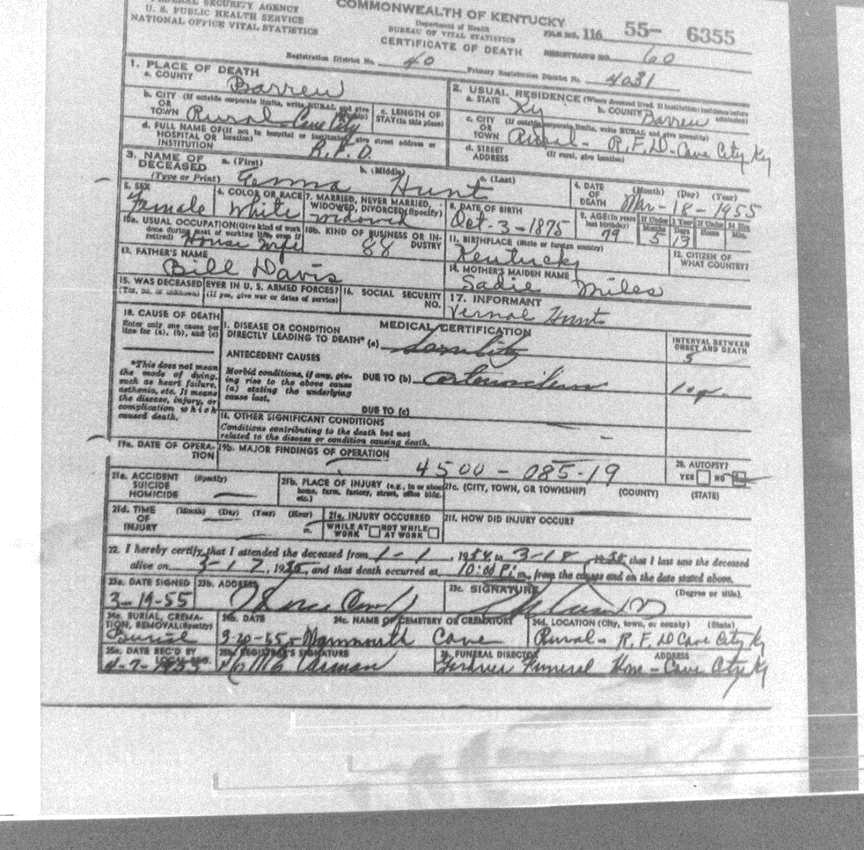 FEDERAL SECURITY AGENCY
U. S. PUBLIC HEALTH SERVICE
NATIONAL OFFICE VITAL STATISTICS
COMMONWEALTH OF KENTUCKY
Department of Health
BUREAU OF VITAL STATISTICS
CERTIFICATE OF DEATH
FILE NO. 116 55- 6355
REGISTRAR'S NO. 60
Registration District No. 40 Primary Registration District No. 4031
1. PLACE OF DEATH
a. COUNTY Barren
b. CITY (If outside corporate limits, write RURAL and give
OR
TOWN Rural- Cave City
c. LENGTH OF
STAY (in this place)
d. FULL NAME OF (If not in hospital or institution, give street address or
HOSPITAL OR location)
INSTITUTION R.F.D.
2. USUAL RESIDENCE (Where deceased lived. If institution: residence before
a. STATE Ky b. COUNTY Barren admission)
c. CITY (If outside corporate limits, write RURAL and give township)
OR
TOWN Rural- R.F.D-Cave City Ky
d. STREET (If rural, give location)
ADDRESS
3. NAME OF
DECEASED
(Type or Print)
a. (First) b. (Middle) c. (Last)
Hunt
4. DATE
OF
DEATH
(Month) (Day) (Year)
Mar-18-1955
5. SEX
Female
6. COLOR OR RACE
White
7. MARRIED, NEVER MARRIED,
WIDOWED, DIVORCED (Specify)
Widowed
8. DATE OF BIRTH
Oct-3-1875
9. AGE (In years
last birthday)
79
If Under 1 Year
Months Days
5
If Under 24 Hrs.
Hours Min.
10a. USUAL OCCUPATION (Give kind of work
done during most of working life, even if
retired) House Wife
10b. KIND OF BUSINESS OR IN-
DUSTRY
88
11. BIRTHPLACE (State or foreign country)
Kentucky
12. CITIZEN OF
WHAT COUNTRY?
13. FATHER'S NAME
Bill Davis
14. MOTHER'S MAIDEN NAME
Sadie Miles
15. WAS DECEASED EVER IN U. S. ARMED FORCES?
(Yes, no, or unknown) (If yes, give war or dates of service)
16. SOCIAL SECURITY
NO.
17. INFORMANT
Vernal Hunt
18. CAUSE OF DEATH
Enter only one cause per
line for (a), (b), and (c)
*This does not mean
the mode of dying,
such as heart failure,
asthenia, etc. It means
the disease, injury, or
complication which
caused death.
MEDICAL CERTIFICATION
I. DISEASE OR CONDITION
DIRECTLY LEADING TO DEATH* (a) Senility
INTERVAL BETWEEN
ONSET AND DEATH
5
ANTECEDENT CAUSES
Morbid conditions, if any, giv-
ing rise to the above cause
(a) stating the underlying
cause last.
DUE TO (b)
DUE TO (c)
II. OTHER SIGNIFICANT CONDITIONS
Conditions contributing to the death but not
related to the disease or condition causing death.
19a. DATE OF OPERA-
TION
19b. MAJOR FINDINGS OF OPERATION
4500 - 085-19
20. AUTOPSY?
YES NO
21a. ACCIDENT (Specify)
SUICIDE
HOMICIDE
21b. PLACE OF INJURY (e.g., in or about
home, farm, factory, street, office bldg.
etc.)
21c. (CITY, TOWN, OR TOWNSHIP) (COUNTY) (STATE)
21d. TIME (Month) (Day) (Year) (Hour)
OF
INJURY m.
21e. INJURY OCCURRED
WHILE AT NOT WHILE
WORK AT WORK
21f. HOW DID INJURY OCCUR?
22. I hereby certify that I attended the deceased from 1-1, 1954 to 3-18, 1955, that I last saw the deceased
alive on 3-17, 1955, and that death occurred at 10:00 P.m., from the causes and on the date stated above.
23a. DATE SIGNED
3-19-55
23b. ADDRESS
23c. SIGNATURE (Degree or title).
24a. BURIAL, CREMA-
TION, REMOVAL (Specify)
Burial
24b. DATE
3-20-55
24c. NAME OF CEMETERY OR CREMATORY
Mammouth Cave
24d. LOCATION (City, town, or county) (State)
Rural- R.F.D Cave City Ky
25a. DATE REC'D BY
4-7-1955
25b. REGISTRAR'S SIGNATURE
26. FUNERAL DIRECTOR ADDRESS
Funeral Home - Cave City Ky